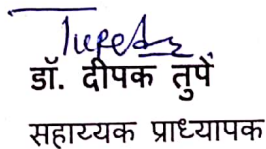 डॉ. दीपक तुपें
सहाय्यक प्राध्यापक